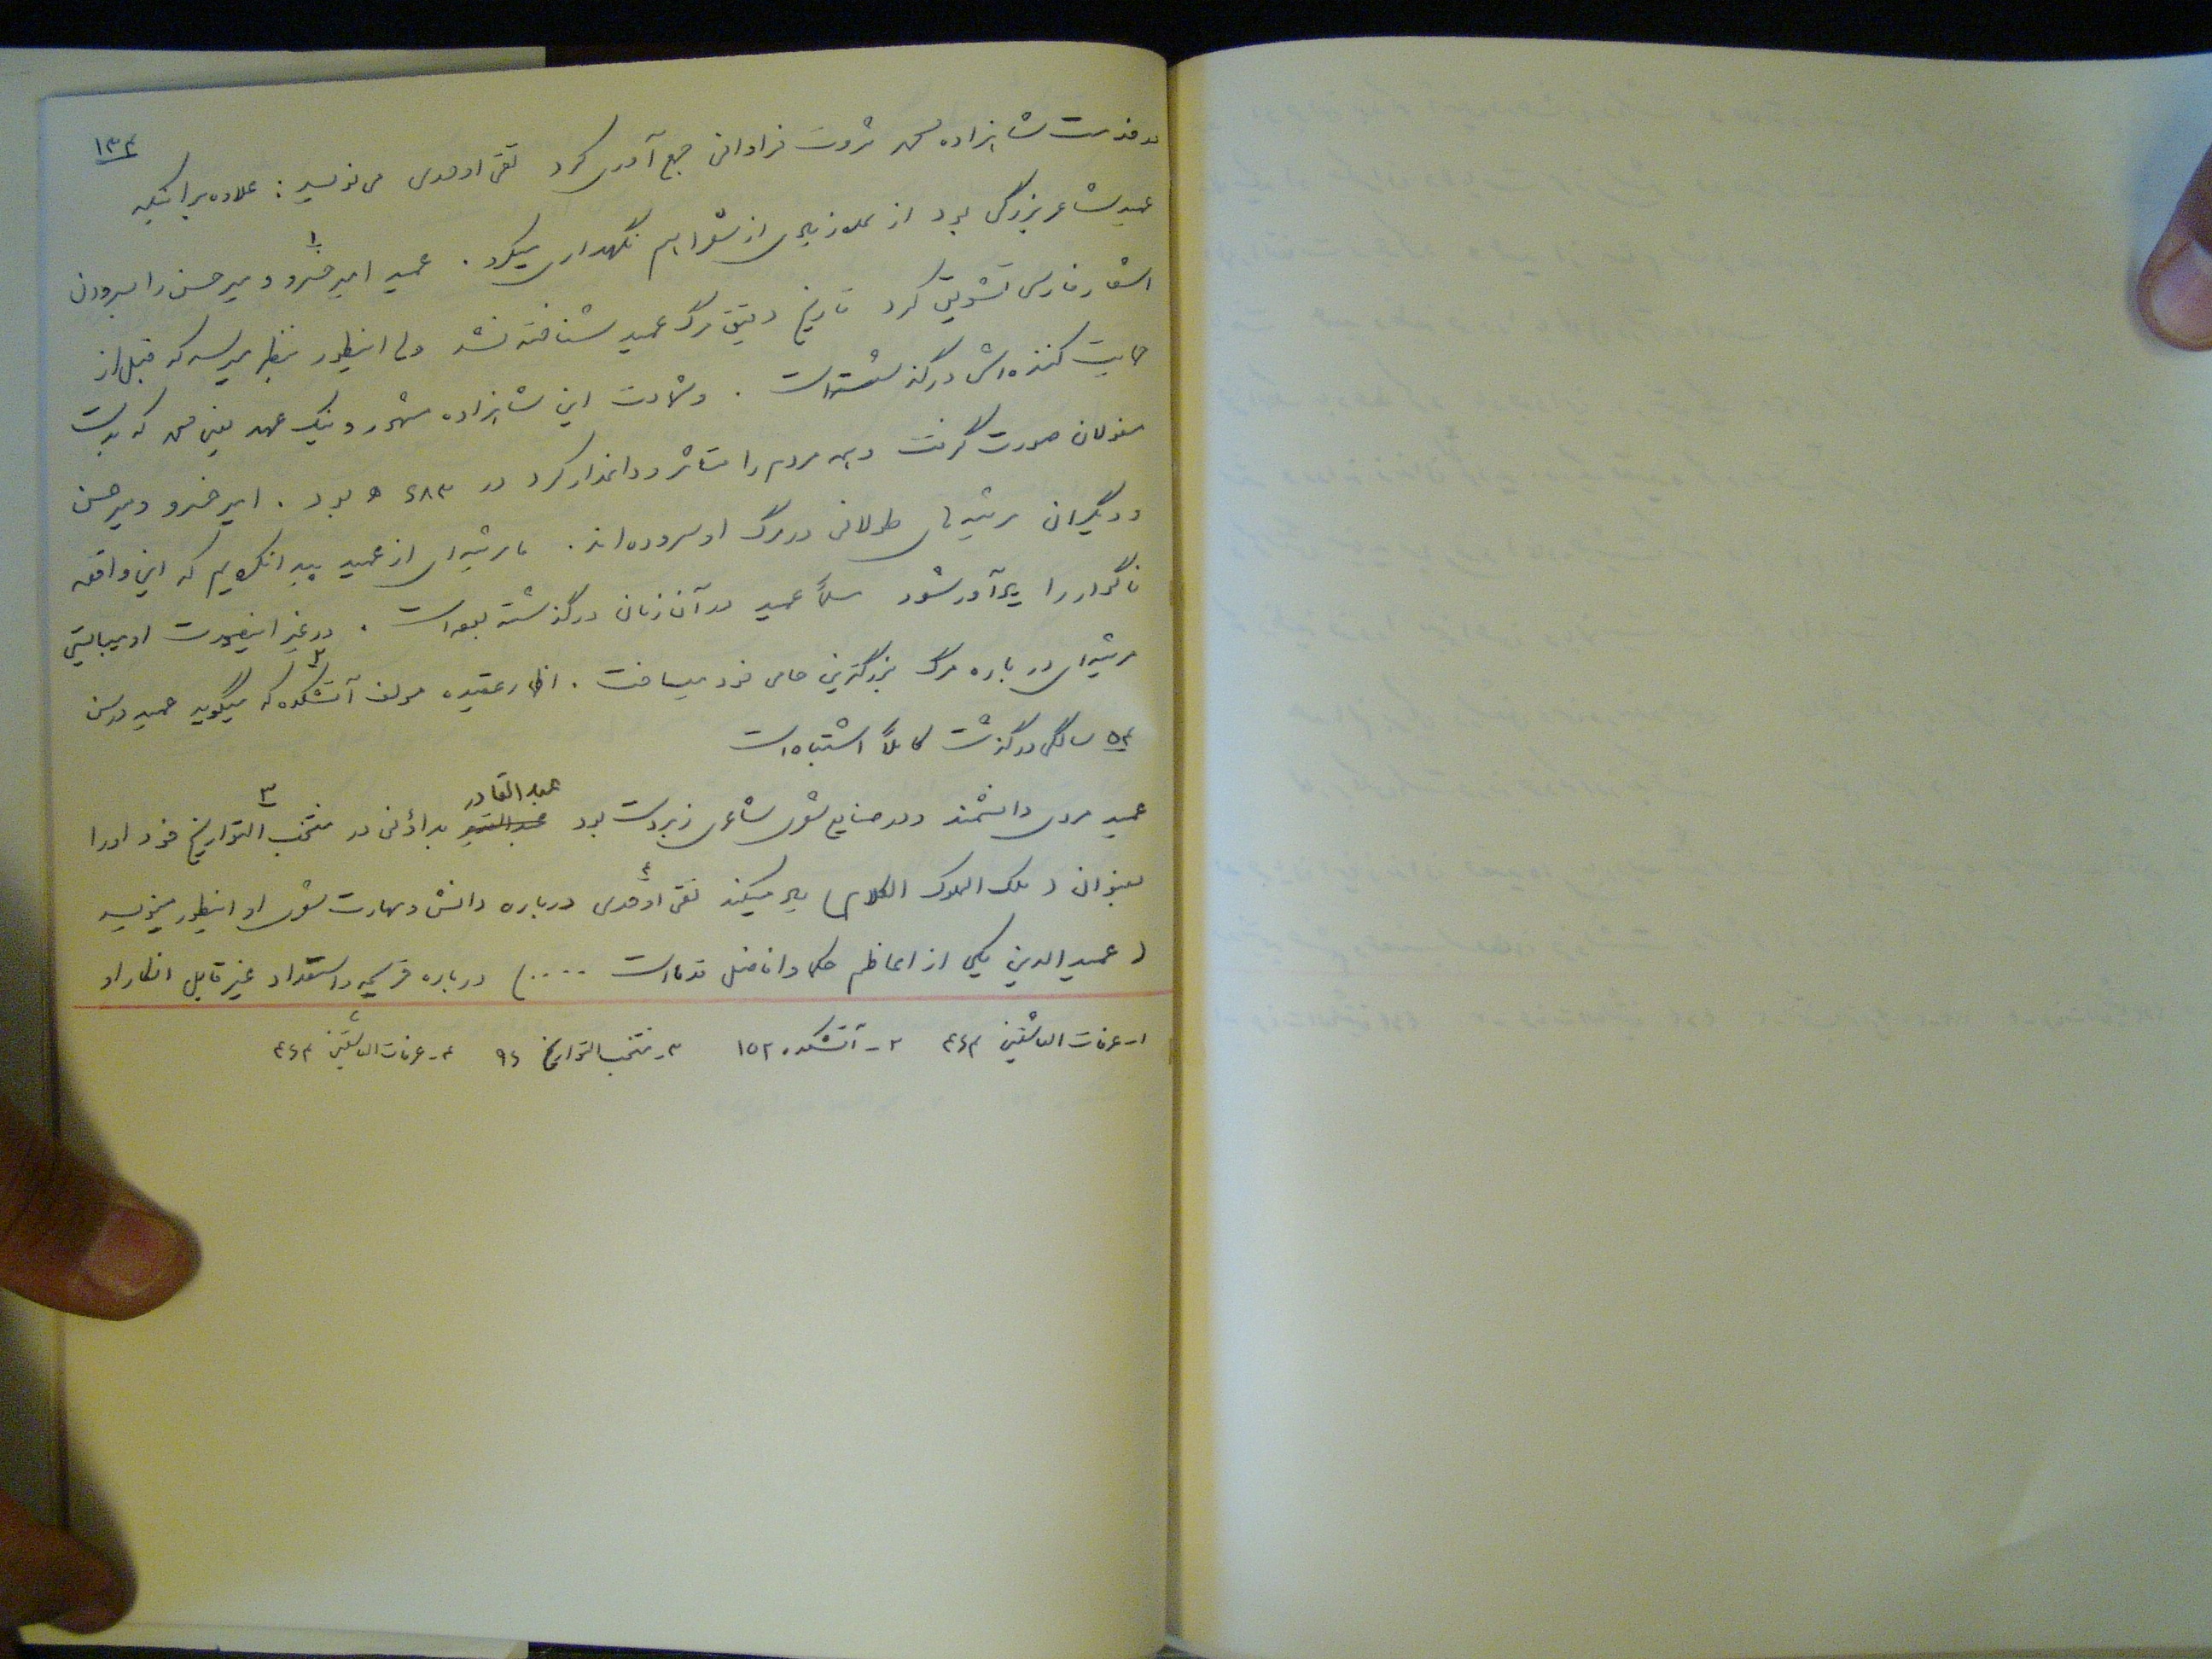 ۱۳۴
در خدمت شاهزاده محمد ثروت فراوانی جمع آوری کرد تقی اوحدی می نویسد : علاوه بر اینکه
عمید شاعر بزرگی بود از عده زیادی از شعرا هم نگهداری میکرد . عمید امیر خسرو ۱ و میر حسن را بسرودن
اشعار فارسی تشویق کرد تاریخ دقیق مرگ عمید شناخته نشد ولی اینطور بنظر میرسد که قبل از
حمایت کننده اش درگذشته است . و شهادت این شاهزاده مشهور و نیک عهد یعنی محمد که بدست
مغولان صورت گرفت و همه مردم را متاثر و داغدار کرد در ۶۸۳ ه بود . امیر خسرو و میر حسن
و دیگران مرثیه های طولانی در مرگ او سروده اند . ما مرثیه ای از عمید پیدا نکردیم که این واقعه
ناگوار را یادآور شود مسلماً عمید در آن زمان درگذشته بوده است . در غیر اینصورت او میبایستی
مرثیه ای در باره مرگ بزرگترین حامی خود میساخت . اظهار عقیده مولف آتشکده ۲ که میگوید عمید در سن
۵۴ سالگی درگذشت کاملاً اشتباه است
عمید مردی دانشمند و در صنایع شعری شاعری زبردست بود عبدالقادر بداؤنی در منتخب التواریخ ۳ خود او را
بعنوان ( ملک الملوک الکلام ) یاد میکند تقی اوحدی ٤ درباره دانش و مهارت شعری او اینطور مینویسد
( عمید الدین یکی از اعاظم حکما و افاضل قدماست .....) درباره قریحه و استعداد غیر قابل انکار او
۱- عرفات العاشقین ٤٦٤ ۲- آتشکده ۱۵۲ ۳- منتخب التواریخ ۹٦ ۴- عرفات العاشقین ٤٦٤